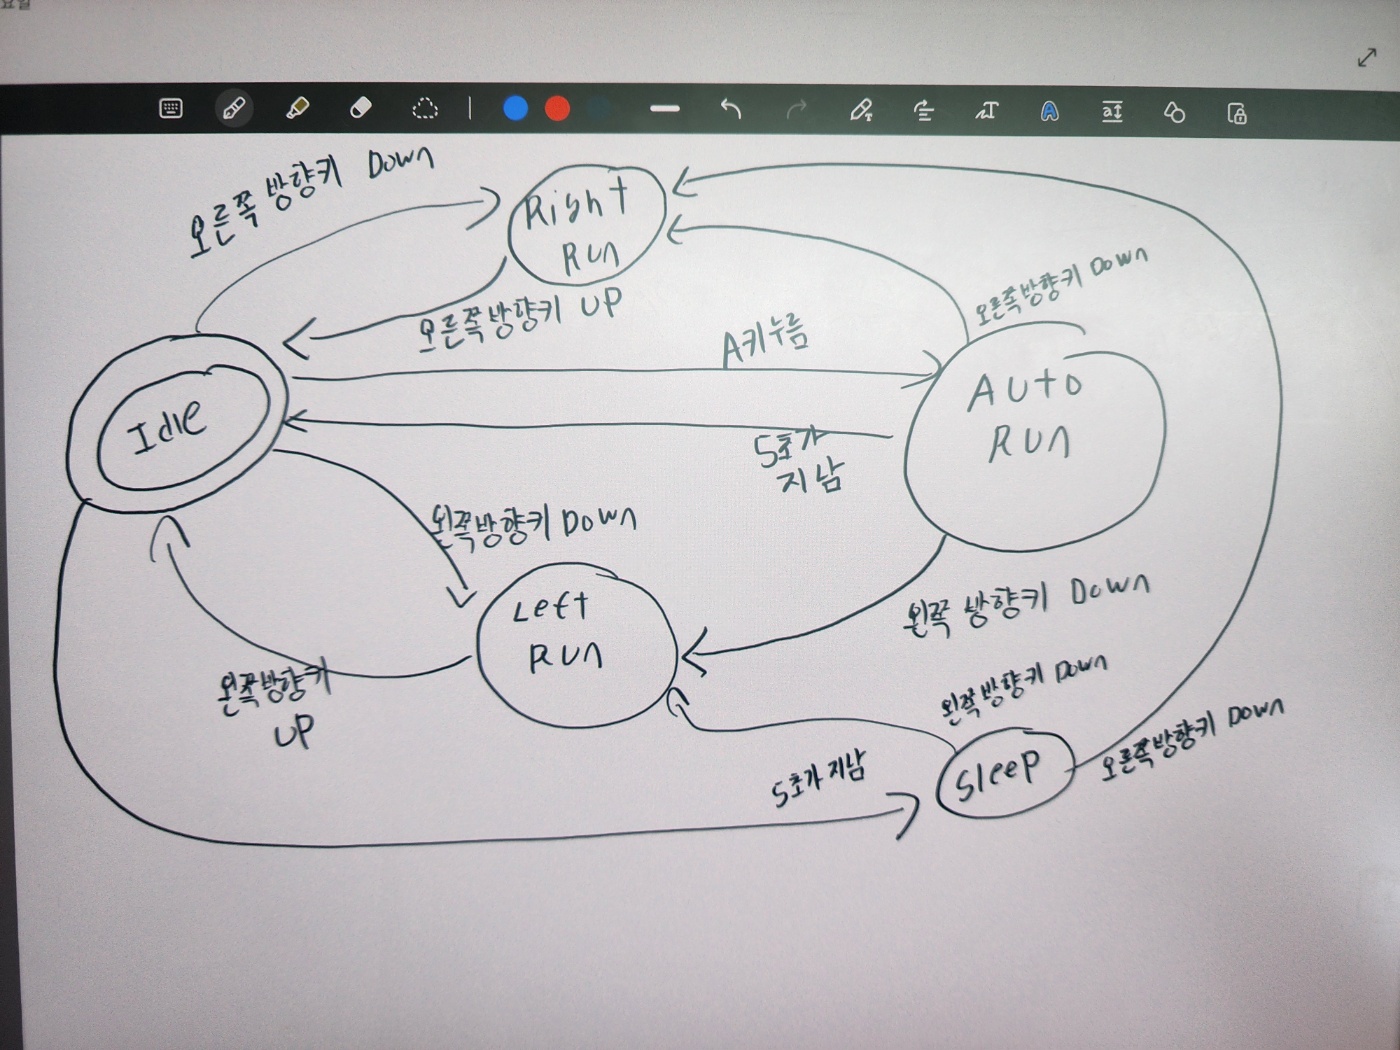 오른쪽 방향키 Down
Right
Run
오른쪽 방향키 UP
A키누름
오른쪽 방향키 Down
Idle
Auto
Run
5초가
지남
왼쪽방향키 Down
Left
Run
왼쪽 방향키 Down
왼쪽방향키
UP
왼쪽방향키 Down
5초가 지남
Sleep
오른쪽방향키 Down